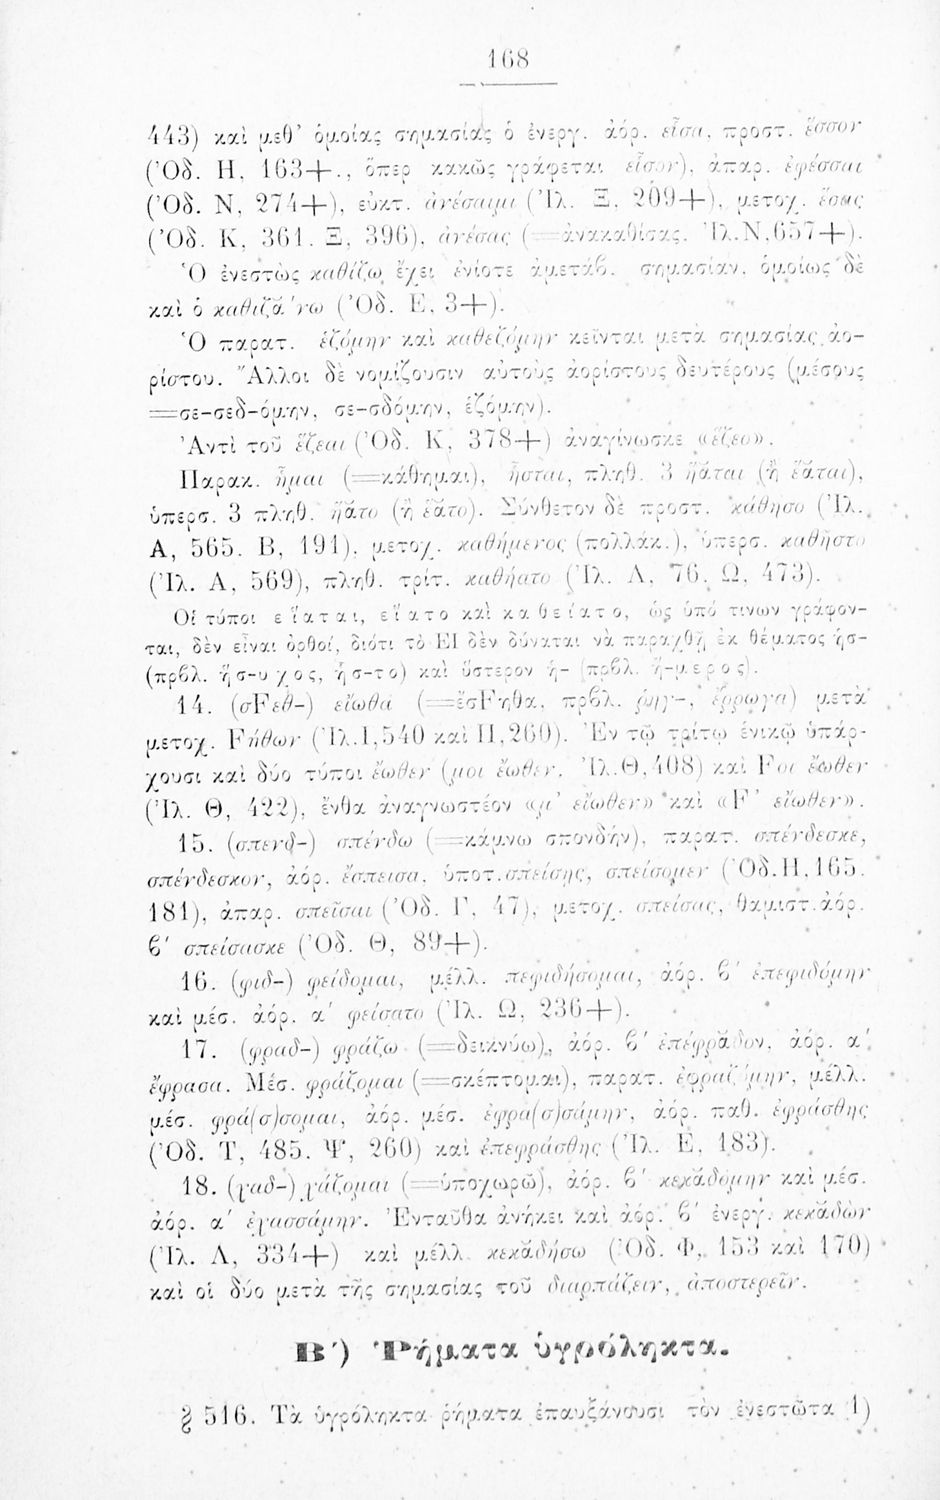 168
443) καὶ μεθ’ ὁμοίας σημασίας ὁ ἐνεργ. ἀόρ. εἷσα, προστ. ἕσσον
(’Οδ. Η, 163+., ὅπερ κακῶς γράφεται εἷσον), ἀπαρ. ἐφέσσαι
(’Οδ. Ν, 274+), εὐκτ. ἀνέσαιμι (’Ιλ. Ξ, 209+), μετοχ. ἕσας
(’Οδ. Κ, 361. Ξ, 396), ἀνέσας (=ἀνακαθίσας. ’Ιλ.Ν,657+).
Ὁ ἐνεστὼς καθίζω ἔχει ἐνίοτε ἀμετάβ. σημασίαν, ὁμοίως δὲ
καὶ ὁ καθιζάνω (’Οδ. Ε, 3+).
Ὁ παρατ. ἑζόμην καὶ καθεζόμην κεῖνται μετὰ σημασίας ἀο-
ρίστου. Ἄλλοι δὲ νομίζουσιν αὐτοὺς ἀορίστους δευτέρους (μέσους
=σε-σεδ-όμην, σε-σδόμην, ἑζόμην).
Ἀντὶ τοῦ ἕζεαι (’Οδ. Κ, 378+) ἀναγίνωσκε «ἕζεο».
Παρακ. ἧμαι (=κάθημαι), ἧσται, πληθ. 3 ἥᾰται (ἢ ἕᾰται),
ὑπερσ. 3 πληθ. ἥᾰτο (ἢ ἕᾰτο). Σύνθετον δὲ προστ. κάθησο (’Ιλ.
Α, 565. Β, 191), μετοχ. καθήμενος (πολλάκ.), ὑπερσ. καθῆστο
(’Ιλ. Α, 569), πληθ. τρίτ. καθήατο (’Ιλ. Λ, 76. Ω, 473).
Οἱ τύποι εἵαται, εἵατο καὶ καθείατο, ὡς ὑπό τινων γράφον-
ται, δὲν εἶναι ὀρθοί, διότι τὸ ΕΙ δὲν δύναται νὰ παραχθῇ ἐκ θέματος ἡσ-
(πρβλ. ἥσ-υχος, ἧσ-το) καὶ ὕστερον ἡ- (πρβλ. ἥ-μερος).
14. (σFεθ-) εἴωθα (=ἔσFηθα, πρβλ. ῥηγ-, ἔρρωγα) μετὰ
μετοχ. Fήθων (’Ιλ.Ι,540 καὶ Π,260). Ἐν τῷ τρίτῳ ἑνικῷ ὑπάρ-
χουσι καὶ δύο τύποι ἔωθεν (μοι ἔωθεν, ’Ιλ.Θ,408) καὶ Fοι ἔωθεν
(’Ιλ. Θ, 422), ἔνθα ἀναγνωστέον «μ’ εἴωθεν» καὶ «F’ εἴωθεν».
15. (σπενδ-) σπένδω (=κάμνω σπονδήν), παρατ. σπένδεσκε,
σπένδεσκον, ἀόρ. ἔσπεισα, ὑποτ. σπείσῃς, σπείσομεν (’Οδ.Η,165.
181), ἀπαρ. σπεῖσαι (’Οδ. Γ, 47), μετοχ. σπείσας, θαμιστ. ἀόρ.
β′ σπείσασκε (’Οδ. Θ, 89+).
16. (φιδ-) φείδομαι, μέλλ. πεφιδήσομαι, ἀόρ. β′ ἐπεφιδόμην
καὶ μέσ. ἀόρ. α′ φείσατο (’Ιλ. Ω, 236+).
17. (φραδ-) φράζω (=δεικνύω), ἀόρ. β′ ἐπέφρᾰδον, ἀόρ. α′
ἔφρασα. Μέσ. φράζομαι (=σκέπτομαι), παρατ. ἐφραζόμην, μέλλ.
μέσ. φρά(σ)σομαι, ἀόρ. μέσ. ἐφρα(σ)σάμην, ἀόρ. παθ. ἐφράσθης
(’Οδ. Τ, 485. Ψ, 260) καὶ ἐπεφράσθης (’Ιλ. Ε, 183).
18. (χαδ-) χάζομαι (=ὑποχωρῶ), ἀόρ. β′ κεκᾰδόμην καὶ μέσ.
ἀόρ. α′ ἐχασσάμην. Ἐνταῦθα ἀνήκει καὶ ἀόρ. β′ ἐνεργ. κεκᾰδὼν
(’Ιλ. Λ, 334+) καὶ μέλλ. κεκᾰδήσω (’Οδ. Φ, 153 καὶ 170)
καὶ οἱ δύο μετὰ τῆς σημασίας τοῦ διαρπάζειν, ἀποστερεῖν.
Β′) Ῥήματα ὑγρόληκτα.
§ 516. Τὰ ὑγρόληκτα ῥήματα ἐπαυξάνουσι τὸν ἐνεστῶτα 1)